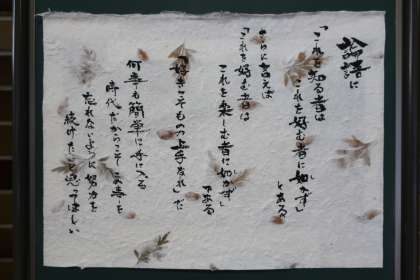 論語に
「これを知る者は
これを好む者に如かず」
とある
さらに言えば
「これを好む者は
これを楽しむ者に如かず」
である
「好きこそものの上手なれ」だ
何事も簡単に手に入る
時代だからこそこの事を
忘れないように努力を
続けたいと思ってほしい